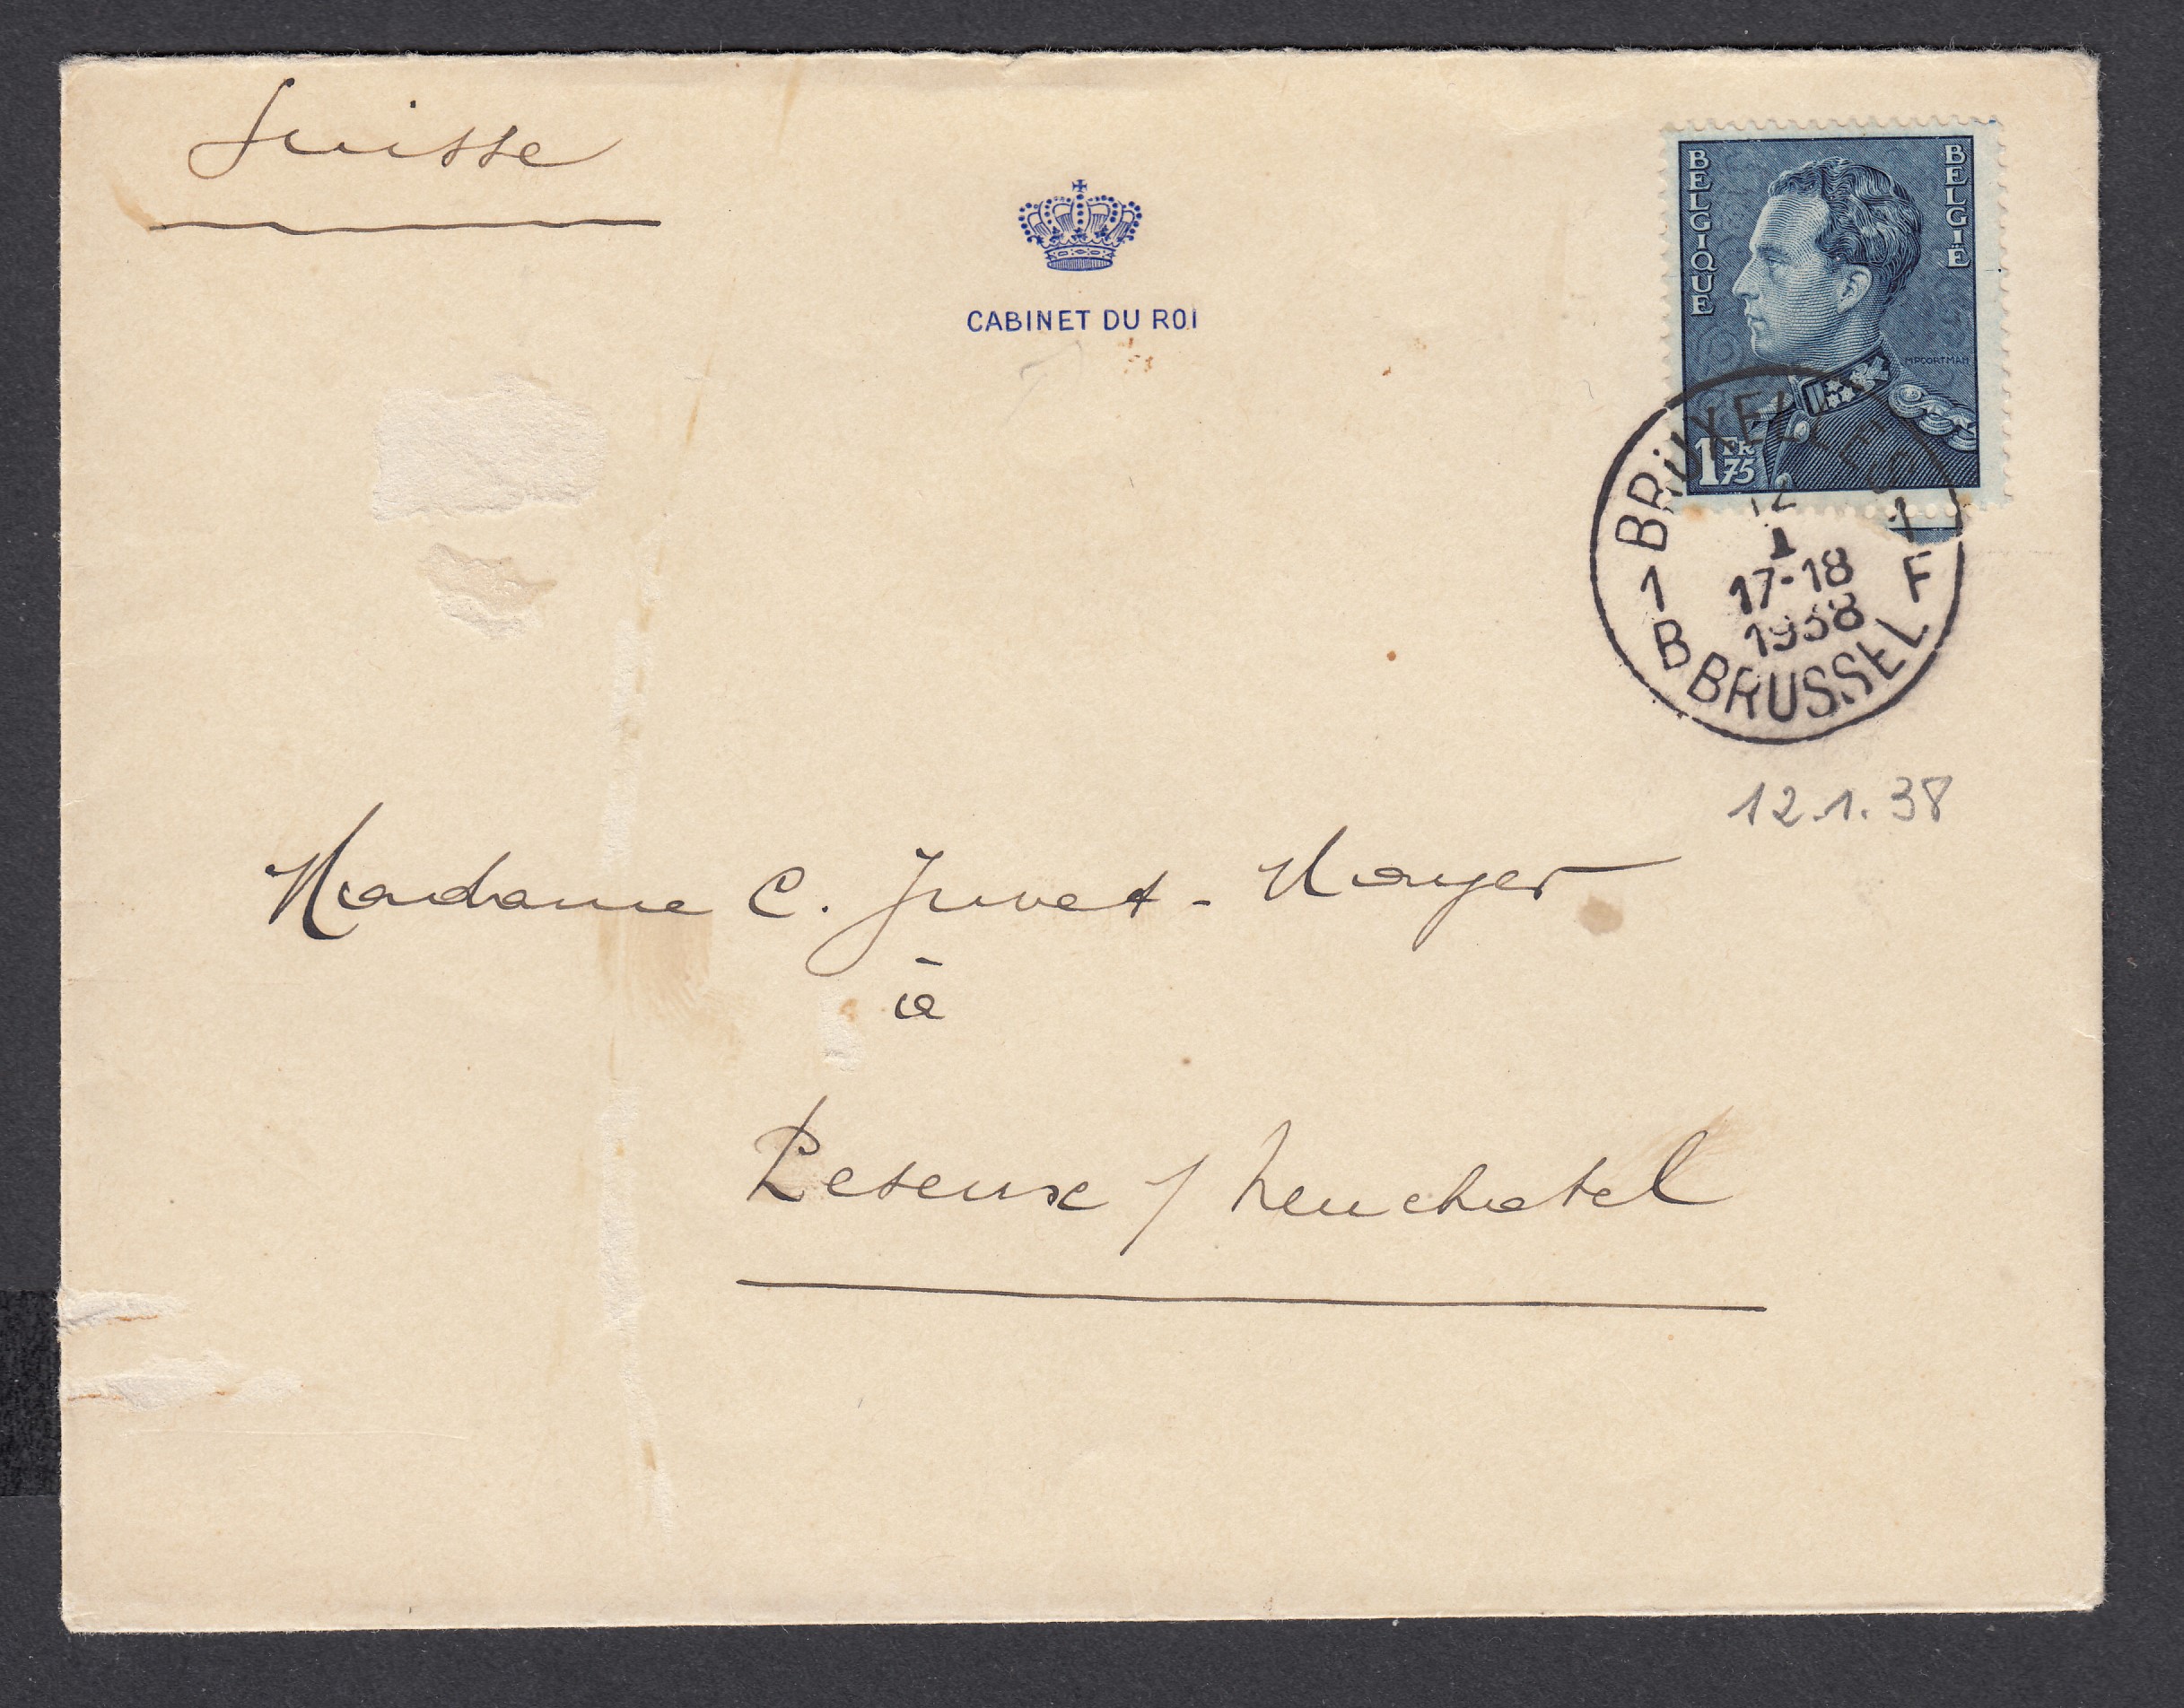 Suisse
CABINET DU ROI
BELGIQUE
BELGIË
MPOORTMAN
1 FR 75
BRUXELLES 1
12
1
17-18
1938
1 B BRUSSEL F
12.1.38
Madame C. Juvet-Mayer
à
Peseux / Neuchatel